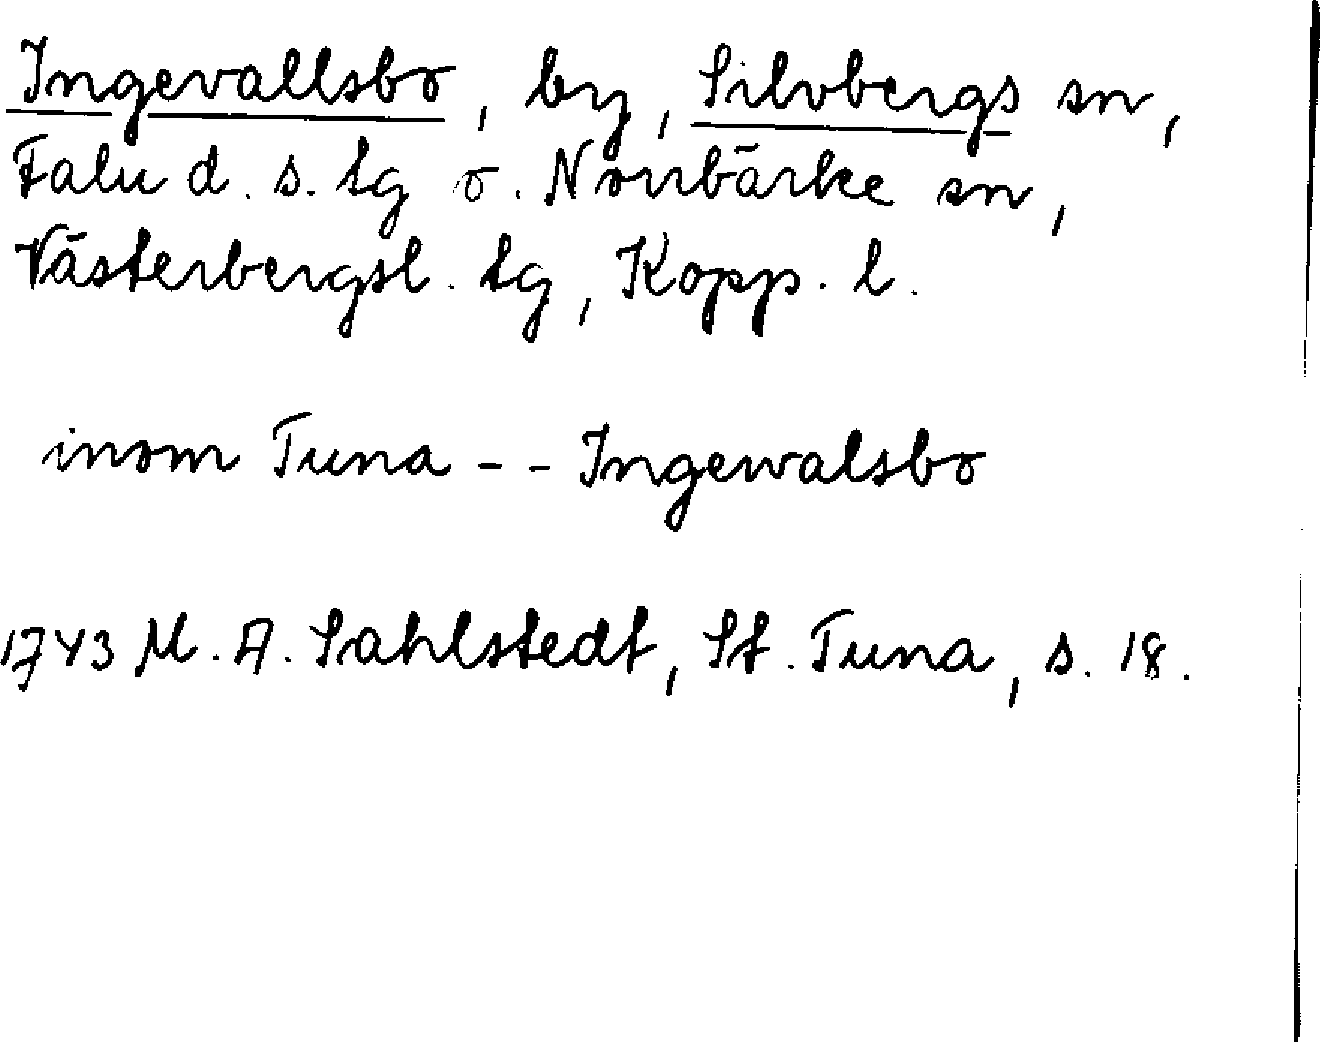 Ingevallsbo, by, Silvbergs sn,
Falu d. s. tg o. Norrbärke sn,
Västerbergsl. tg, Kopp. l.
inom Tuna -- Ingewalsbo
1743 M. A. Sahlstedt, St. Tuna, s. 18.